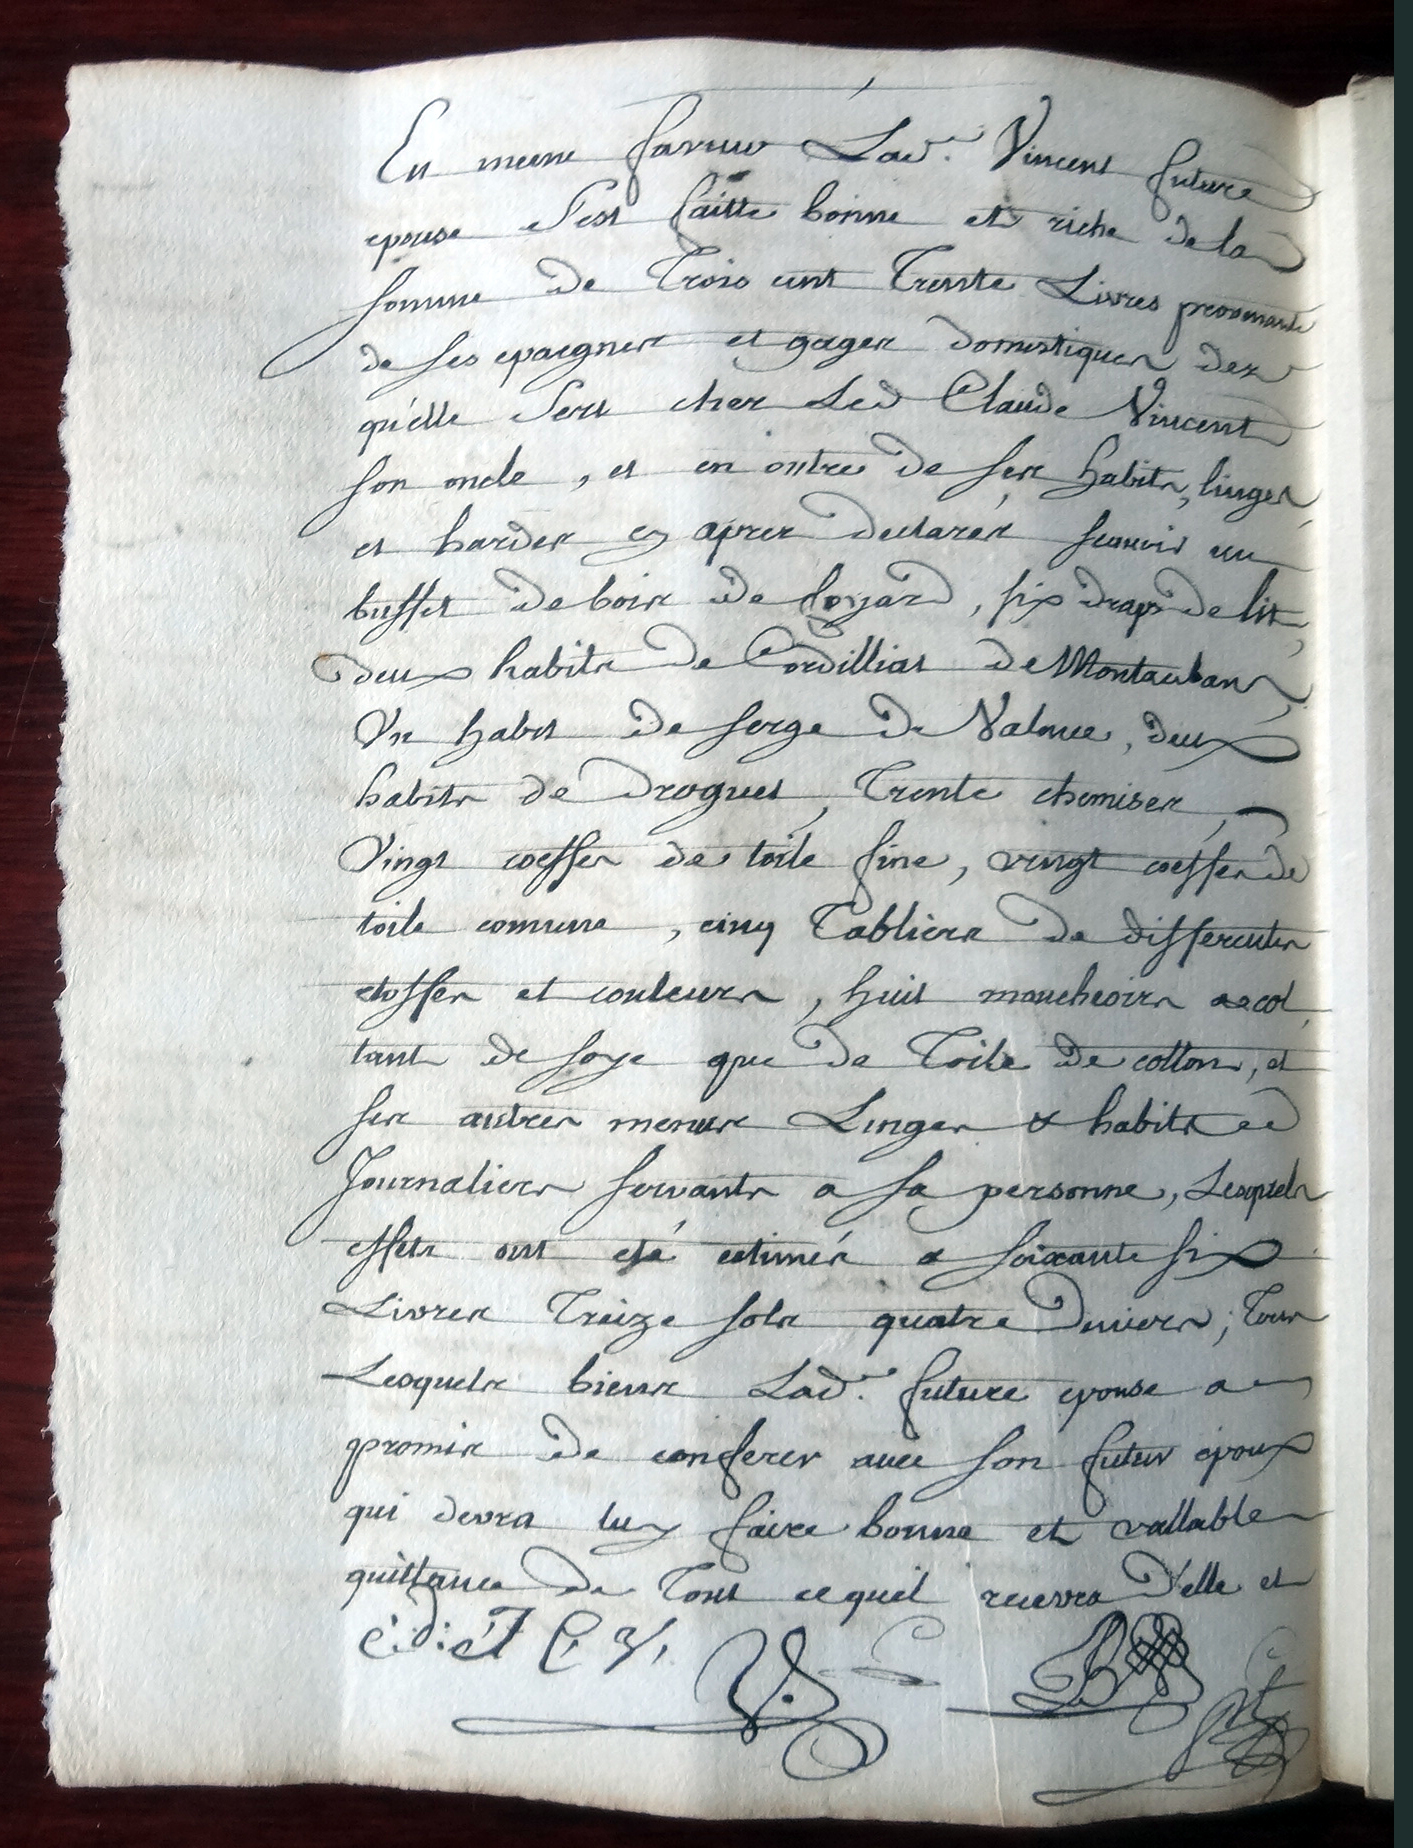 En meme faveur Lad.e Vincent future
epouse s'est faitte bonne et riche de la
somme de Trois cent Trente Livres provenante
de ses epargnes et gages domestiques dez
qu'elle sert chez Led Claude Vincent
son oncle, et en outre de ses habits, linges
et hardes cy apres declarés scavoir un
buffet de bois de foyard, six draps de lit,
deux habits de Cordilliat de Montauban,
Un habit de serge de Valence, deux
habits de Droguet, Trente chemises,
Vingt coeffes de toile fine, vingt coeffes de
toile comune, cinq Tabliers de differentes
etoffes et couleurs, huit mouchoirs a col
tant de soye que de Toile de cotton, et
ses autres menus Linges & habits
Journaliers servants a sa personne, Lesquels
effets ont eté estimés a soixante six
Livres Treize sols quatre Deniers; Tous
Lesquels biens Lad.e future epouse a
promis de conferer avec son futur epoux
qui devra luy faire bonne et vallable
quittance de Tout ce quil recevra d'elle et